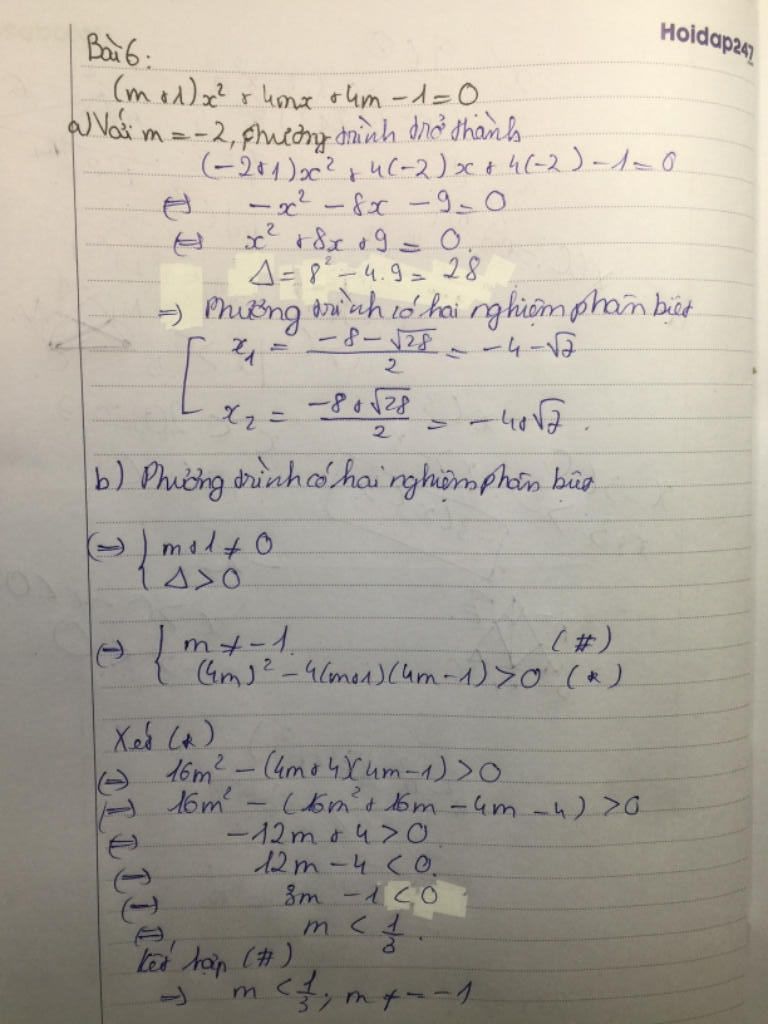 Hoidap247
Bài 6:
(m+1)x² + 4mx + 4m - 1 = 0
a) Với m = -2, phương trình trở thành
(-2+1)x² + 4(-2)x + 4(-2) - 1 = 0
⇔ -x² - 8x - 9 = 0
⇔ x² + 8x + 9 = 0.
Δ = 8² - 4.9 = 28
=> Phương trình có hai nghiệm phân biệt
x₁ = (-8 - √28)/2 = -4 - √7
x₂ = (-8 + √28)/2 = -4 + √7.
b) Phương trình có hai nghiệm phân biệt
⇔ { m + 1 ≠ 0
Δ > 0
⇔ { m ≠ -1. (#)
(4m)² - 4(m+1)(4m-1) > 0 (*)
Xét (*)
⇔ 16m² - (4m+4)(4m-1) > 0
⇔ 16m² - (16m² + 16m - 4m - 4) > 0
⇔ -12m + 4 > 0
⇔ 12m - 4 < 0.
⇔ 3m - 1 < 0
⇔ m < 1/3.
Kết hợp (#)
=> m < 1/3; m ≠ -1